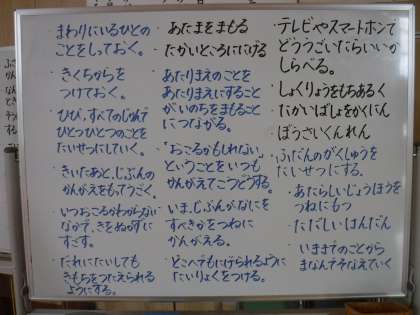 ・まわりにいるひとの
ことをしておく。
・きくちからを
つけておく。
・ひび、すべてのじかんで
ひとつひとつのことを
たいせつにしていく。
・きいたあと、じぶんの
かんがえをもてうごく。
・いつおこるかわからない
なかで、きをぬかずに
すごす。
・だれにたいしても
きもちをつたえられる
ようにする。
・あたまをまもる
・たかいところににげる
・あたりまえのことを
あたりまえにすること
がいのちをまもること
につながる。
・「おこるかもしれない」
ということをいつも
かんがえてこうどうする。
・いま、じぶんがなにを
すべきかをつねに
かんがえる。
・どこへでもにげられるように
たいりょくをつける。
・テレビやスマートホンで
どううごいたらいいか
しらべる。
・しょくりょうをもちあるく
・たかいばしょをかくにん
・ぼうさいくんれん
・ふだんのがくしゅうを
たいせつにする。
・あたらしいじょうほうを
つねにもつ
・ただしいはんだん
・いままでのことから
まなんでそなえていく